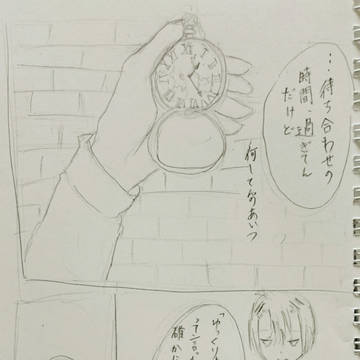 …待ち合わせの
時間、過ぎてん
だけど
何してんあいつ
「ゆっくり
って言っ
確かに